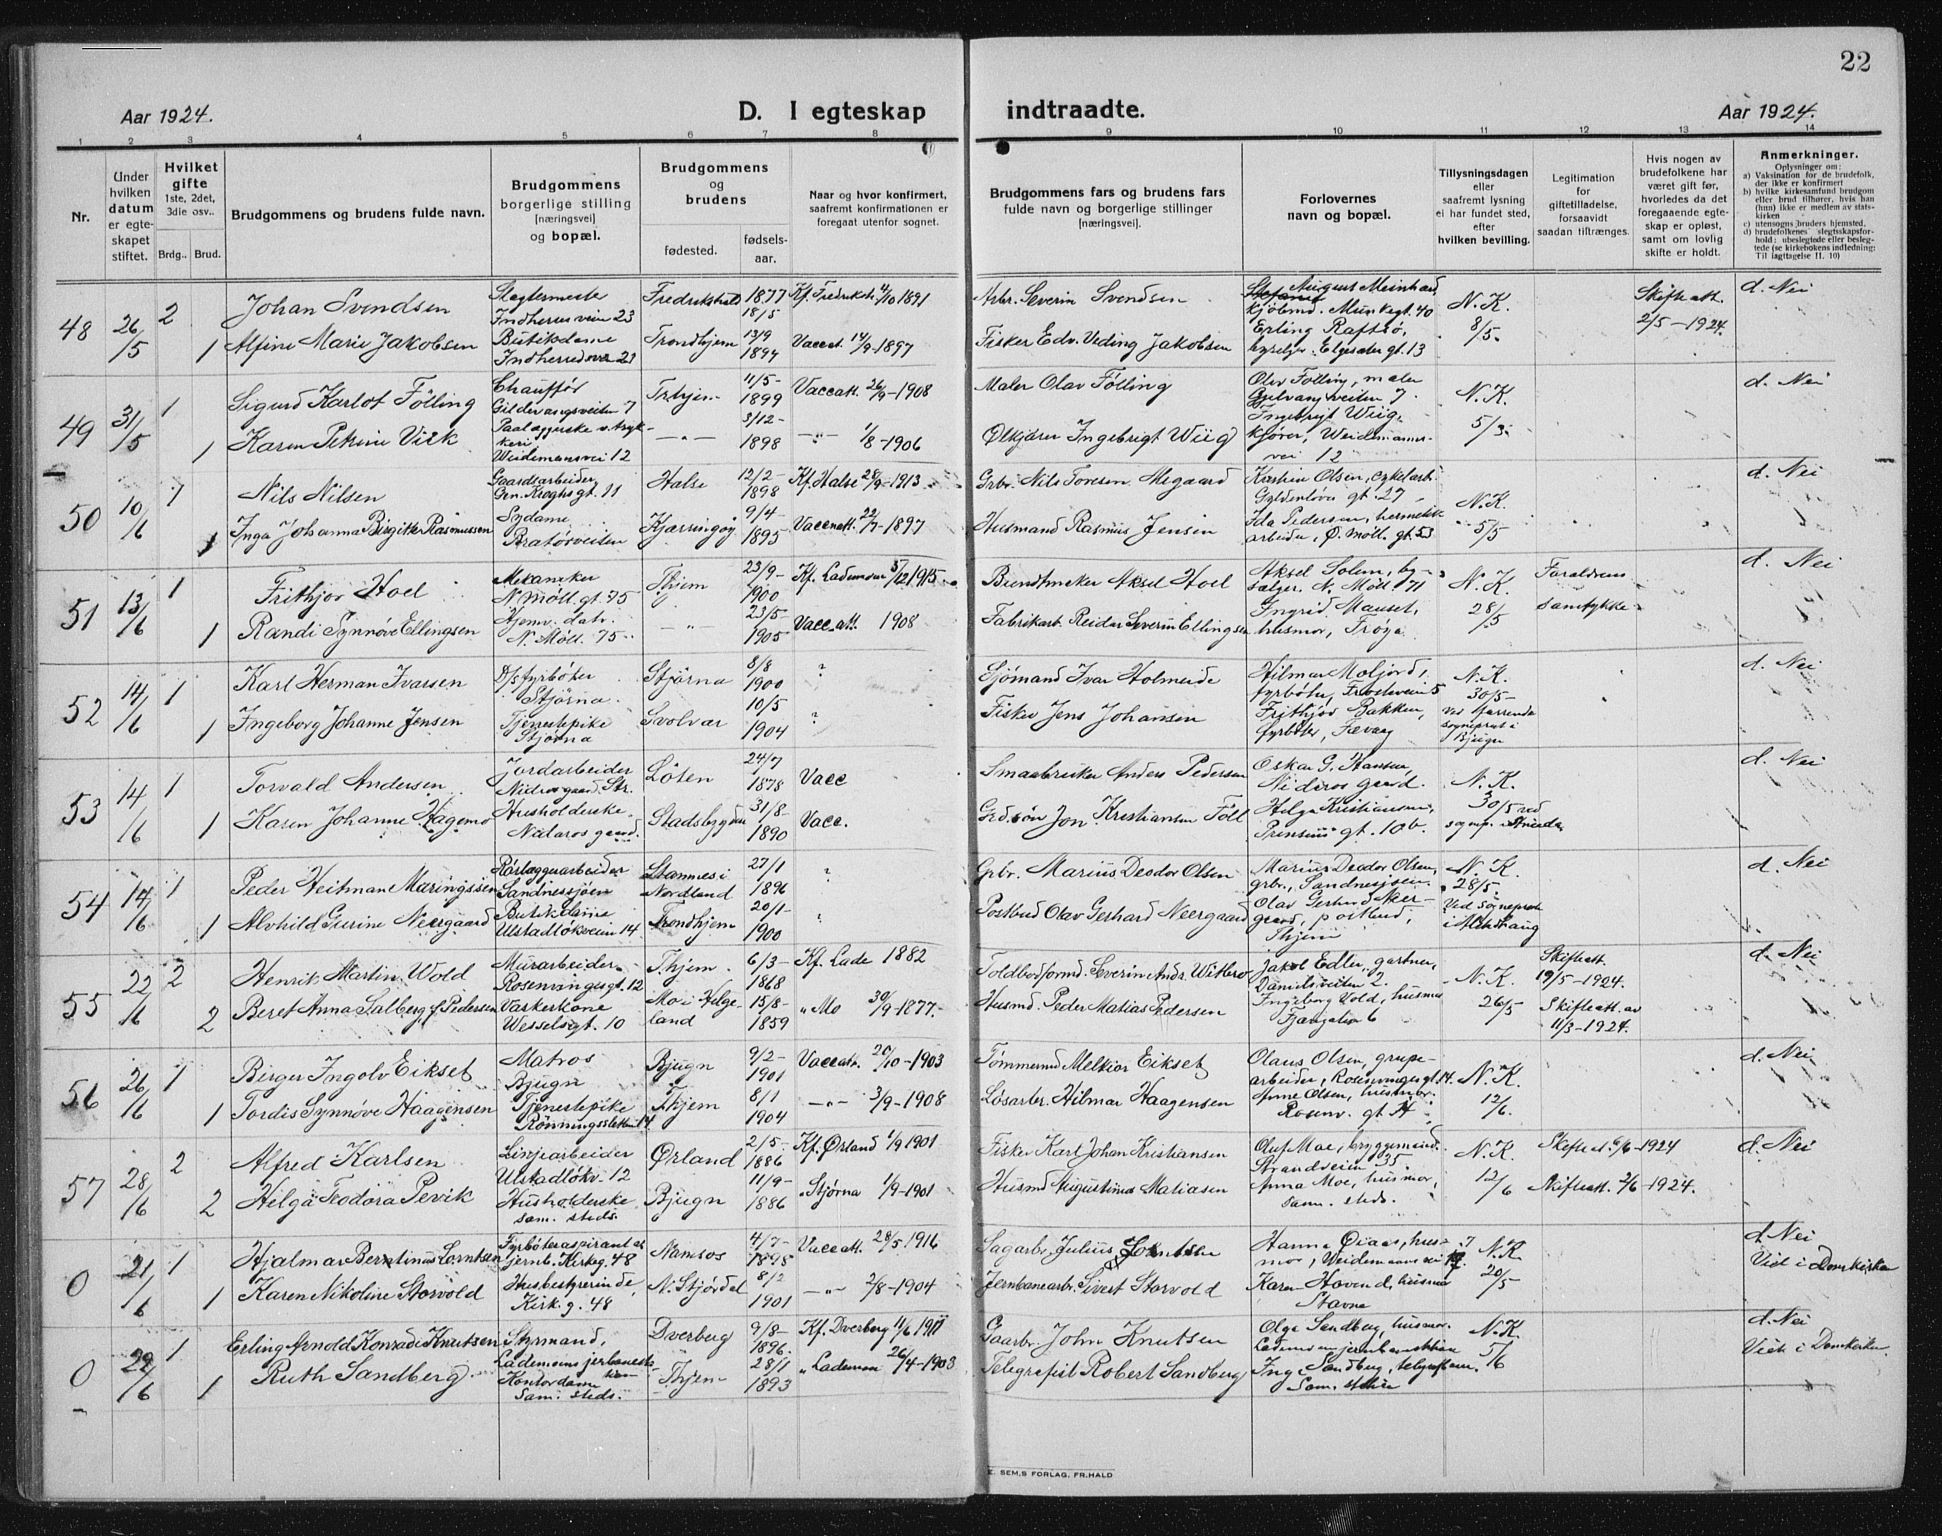 22
Aar 1924. D. I egteskap indtraadte. Aar 1924.
1 2 3 4 5 6 7 8 9 10 11 12 13 14
Nr.
Under hvilken datum er egteskapet stiftet.
Hvilket gifte 1ste, 2det, 3die osv..
Brdg.. Brud.
Brudgommens og brudens fulde navn.
Brudgommens borgerlige stilling [næringsvei] og bopæl.
Brudgommens og brudens
fødested. fødselsaar.
Naar og hvor konfirmert, saafremt konfirmationen er foregaat utenfor sognet.
Brudgommens fars og brudens fars fulde navn og borgerlige stillinger [næringsvei].
Forlovernes navn og bopæl.
Tillysningsdagen eller saafremt lysning ei har fundet sted, efter hvilken bevilling.
Legitimation for giftetilladelse, forsaavidt saadan tiltrænges.
Hvis nogen av brudefolkene har været gift før, hvorledes da det foregaaende egteskap er opløst, samt om lovlig skifte er holdt.
Anmerkninger.
Oplysninger om:
a) Vaksination for de brudefolk, der ikke er konfirmert
b) hvilke kirkesamfund brudgom eller brud tilhører, hvis han (hun) ikke er medlem av statskirken
c) utensogns bruders hjemsted,
d) brudefolkenes slegtsskapsforhold: ubeslegtede eller beslegtede (se kirkebokens indledning: Til iagttagelse II. 10)
48 26/5 2 Johan Svendsen Fredrikshald 1877 18/5 1891 Arbr. Severin Svendsen August Meinhard kjøbmd. Munkegt. 40 N.K. 8/5. Skifteatt. 2/5-1924. d. Nei
1 Alfine Marie Jakobsen Butikdame Trondhjem 13/9 1894 Vaccat. 14/9-1897 Fisker Edv. Veding Jakobsen Erling Raftsø,
49 31/5 1 Sigurd Karlot Følling Chauffør Gildevangsveiten 7 Trhjem 11/5- 1899 Vaccatt. 26/9-1908 Maler Olav Følling Olav Følling, maler N.K. 5/3. d. Nei
1 Karen Petrine Viik Weidemansvei 12 -"- 3/12- 1898 -"- 1/8-1906 Ølkjører Ingebrigt Wiig Ingebrigt Wiig kjører, Weidemannsvei 12
50 10/6 1 Nils Nilsen Gaardsarbeider Gen. Kroghs gt. 11 Halse 12/2 1898 Kf. Halse 28/9-1913 Grbr. Nils Toresen Megaard Kirstin Olsen, Gyldenløves gt. 27 N.K. 5/5 d. Nei
1 Inga Johanna Birgitte Rasmussen Sydame Bratørveiten Kjærringøy 9/4- 1895 Vaccatt. 22/7-1897 Husmand Rasmus Jensen Ida Pedersen, hermetikarbeider, Ø. Møll. gt. 53
51 13/6 1 Frithjor Hoel Mekaniker N. Møll. gt. 75 Thjem 23/9- 1900 Kf. Lademoen 5/12 1915 Bundtmaker Aksel Hoel Aksel Solem, N. Møll. 71 N.K. 28/5 Foraldrens samtykke d. Nei
1 Randi Synnøve Ellingsen N. Møll. 75 -"- 23/5 1905 Vacc. att. 1908 Fabrikarb. Reidar Severin Ellingsen Ingrid Mauset, husmor, Frøya
52 14/6 1 Karl Herman Ivarsen D/S fyrbøter Stjørna Stjørna 8/8 1900 ? Sjømand Ivar Holmeide Hilmar Moljord, fyrbøter, N.K. 30/5- d. Nei
1 Ingeborg Johanne Jensen Tjenestepike Stjørna Svolvær 10/5 1904 ? Fisker Jens Johansen Frithjov Bakken, fyrbøter, Fevaag ved sogneprest i Bjugn
53 14/6 1 Torvald Andersen Jordarbeider Løten 24/7 1878 Vacc Smaabruker Anders Pedersen Oskar G. Hansen, Nidaros gaard. N.K. 30/5 ved d. Nei
1 Karen Johanne Hagemo Husholderske Nidaros gaard. Stadsbygden 31/8- 1890 Vacc. Grd. Jon Kristiansen Føll Helga Kristiansen, Prinsens gt. 10b.
54 14/6 1 Peder Heitman Maringssen Rørlæggerarbeider Sandnessjøen Stamnes i Nordland 27/1 1896 ? Grbr. Marius Deodor Olsen Marius Deodor Olsen, grbr., Sandnessjøen N.K. 28/5. d. Nei
1 Alvhild Gurine Neergaard Butikdame Ulstadløkveien 14 Trondhjem 20/1- 1900 ? Postbud Olav Gerhard Neergaard Olav Gerhard Neergaard, postbud, Thjem Ved sogneprest i Alstahaug
55 22/6 2 Henrik Martin Wold Murarbeider Rosenvingesgt. 12 Thjem. 6/3- 1868 Kf. Lade 1882 Jakob Edler, gartner, Danielsveiten 2 N.K. 26/5 Skifteatt. 19/5-1924. d. Nei
2 Beret Anna Salberg f. Pedersen Vaskerkone Wesselsgt. 10 Mo i Helgeland 15/8- 1859 " Mo 30/9-1877. Husmd. Peder Matias Pedersen Ingeborg Vold, husmor Skifteatt. av 11/3-1924.
56 26/6 1 Birger Ingolv Eikset Matros Bjugn Bjugn 9/2- 1901 Vaccatt. 20/10-1903 Tømmermd Melkior Eikset Olaus Olsen, grubearbeider, Rosenvingesgt. 14. N.K. 12/6. d. Nei
1 Tordis Synnøve Haagensen Tjenestepike Rønningsletten 14 Thjem 8/1 1904 -"- 3/9-1908 Løsarbr. Hilmar Haagensen Anne Olsen, husmor. Rosenv. gt. 14
57 28/6 2 Alfred Karlsen Linjearbeider Ulstadløkv. 12 Ørland 2/5- 1886 Kf. Ørland 1/9 1901 Fisker Karl Johan Kristiansen Oluf Moe, bryggemand. Strandveien 35. N.K. 12/6 Skifteatt. 6/6-1924 d. Nei
2 Helga Teodora Pevik Husholderske sam. steds. Bjugn 11/9- 1886 " Stjørna 1/9-1901 Husmd Augustinus Matiasen Anna Moe, husmor, sam. steds. Skifteatt. 2/6-1924.
0 21/6 1 Hjalmar Berntinus Lorntsen Fyrbøteraspirant Kirkeg. 48 Namsos 4/7- 1895 Vaccatt. 28/5 1916 Sagarbr. Julius Lorntsen Hanna Øiaas, husmor, N.K. 20/5 d. Nei Viet i Domkirken
1 Karen Nikoline Storvold Husbestyrerinde, Kirk. g. 48 N. Stjørdal 8/2 1901 -"- 2/8-1904 Jernbanearb. Sivert Storvold Karen Hovend, husmor Stavne
0 22/6 1 Erling Arnold Konradi Knutsen Styrmand, Dverberg 9/8- 1896. Kf. Dverberg 11/6 1911 Gaarbr. John Knutsen Olga Sandberg, husmor. N.K. 5/6 d. Nei Viet i Domkirken
1 Ruth Sandberg Kontordame Sam. steds. Thjem 28/1 1893 " Lademoen 26/4-1903 Telegrafist Robert Sandberg Inga Sandberg, Sam. steds
E. SEM,S FORLAG, FR.HALD